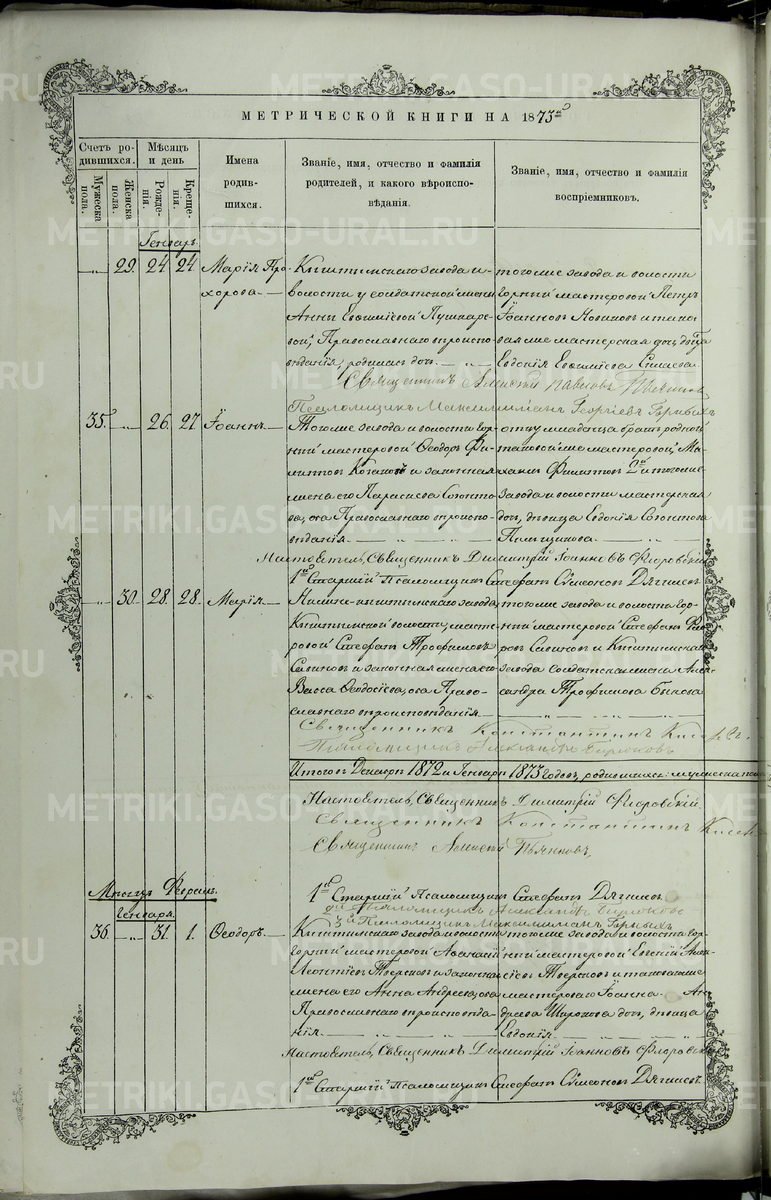 МЕТРИЧЕСКОЙ КНИГИ НА 1873й
Счетъ родившихся.
Мужеска пола.
Женска пола.
Мѣсяцъ и день
Рожденія.
Крещенія.
Имена родившихся.
Званіе, имя, отчество и фамилія родителей, и какого вѣроисповѣданія.
Званіе, имя, отчество и фамилія воспріемниковъ.
Генварь.
29. 24 24 Марія Прохорова
Кыштымскаго завода и
волости у солдатской жены
Анны Евѳиміевой Пушкаре-
вой, Православнаго вѣроиспо-
вѣданія, родилась дочь.
тогоже завода и волости
горный мастеровой Петръ
Іоанновъ Новиковъ и тако-
ваяже мастерская дочь, дѣвица
Евдокія Евѳиміева
Священникъ Алексій Павловъ Пьянковъ
Псаломщикъ Максимиліанъ Георгіевъ Горныхъ
35. 26. 27 Іоаннъ
Тогоже завода и волости гор-
ный мастеровой Ѳеодоръ Фи-
липповъ и законная
жена его Параскева
ва, оба Православнаго вѣроиспо-
вѣданія.
отцу младенца братъ родной
таковойже мастеровой, Ми-
хаилъ Филипповъ 2й и тогоже
завода и волости мастерская
дочь, дѣвица Евдокія
Пильщикова.
Настоятель, Священникъ Димитрій Іоанновъ Флоровскій
1й Старшій Псаломщикъ Стефанъ Симеоновъ Дягилевъ
30. 28. 28. Марія
Нижне-кыштымскаго завода,
Кыштымской волости, масте-
ровой Стефанъ Трофимовъ
Савиновъ и законная жена его
Васса Ѳеодосіева, оба Право-
славнаго вѣроисповѣданія
тогоже завода и волости гор-
ный мастеровой Стефанъ
ровъ Савиновъ и Кыштымскаго
завода солдатская жена Алек-
сандра Трофимова Быкова
Священникъ Константинъ
Псаломщикъ Александръ Бирюковъ
Итого въ Декабрѣ 1872 и Генварѣ 1873 годовъ, родившихся: мужеска пола
Настоятель, Священникъ Димитрій Флоровскій
Священникъ Константинъ
Священникъ Алексій Пьянковъ,
1й Старшій Псаломщикъ Стефанъ Дягилевъ
2й Псаломщикъ Александръ Бирюковъ
3й Псаломщикъ Максимиліанъ Горныхъ
Мѣсяцъ Февраль.
Генваря.
36. 31. 1. Ѳеодоръ
Кыштымскаго завода и волости
Горный мастеровой Аѳанасій
Леонтіевъ Тверсковъ и законная
жена его Анна Андреева, оба
Православнаго вѣроисповѣда-
нія.
тогоже завода и волости гор-
ный мастеровой Евгеній
сіевъ Тверсковъ и таковаго же
мастероваго Іоанна Ан-
дреева Широкова дочь, дѣвица
Евдокія
Настоятель, Священникъ Димитрій Іоанновъ Флоровскій
1й Старшій Псаломщикъ Стефанъ Симеоновъ Дягилевъ.
METRIKI.GASO-URAL.RU